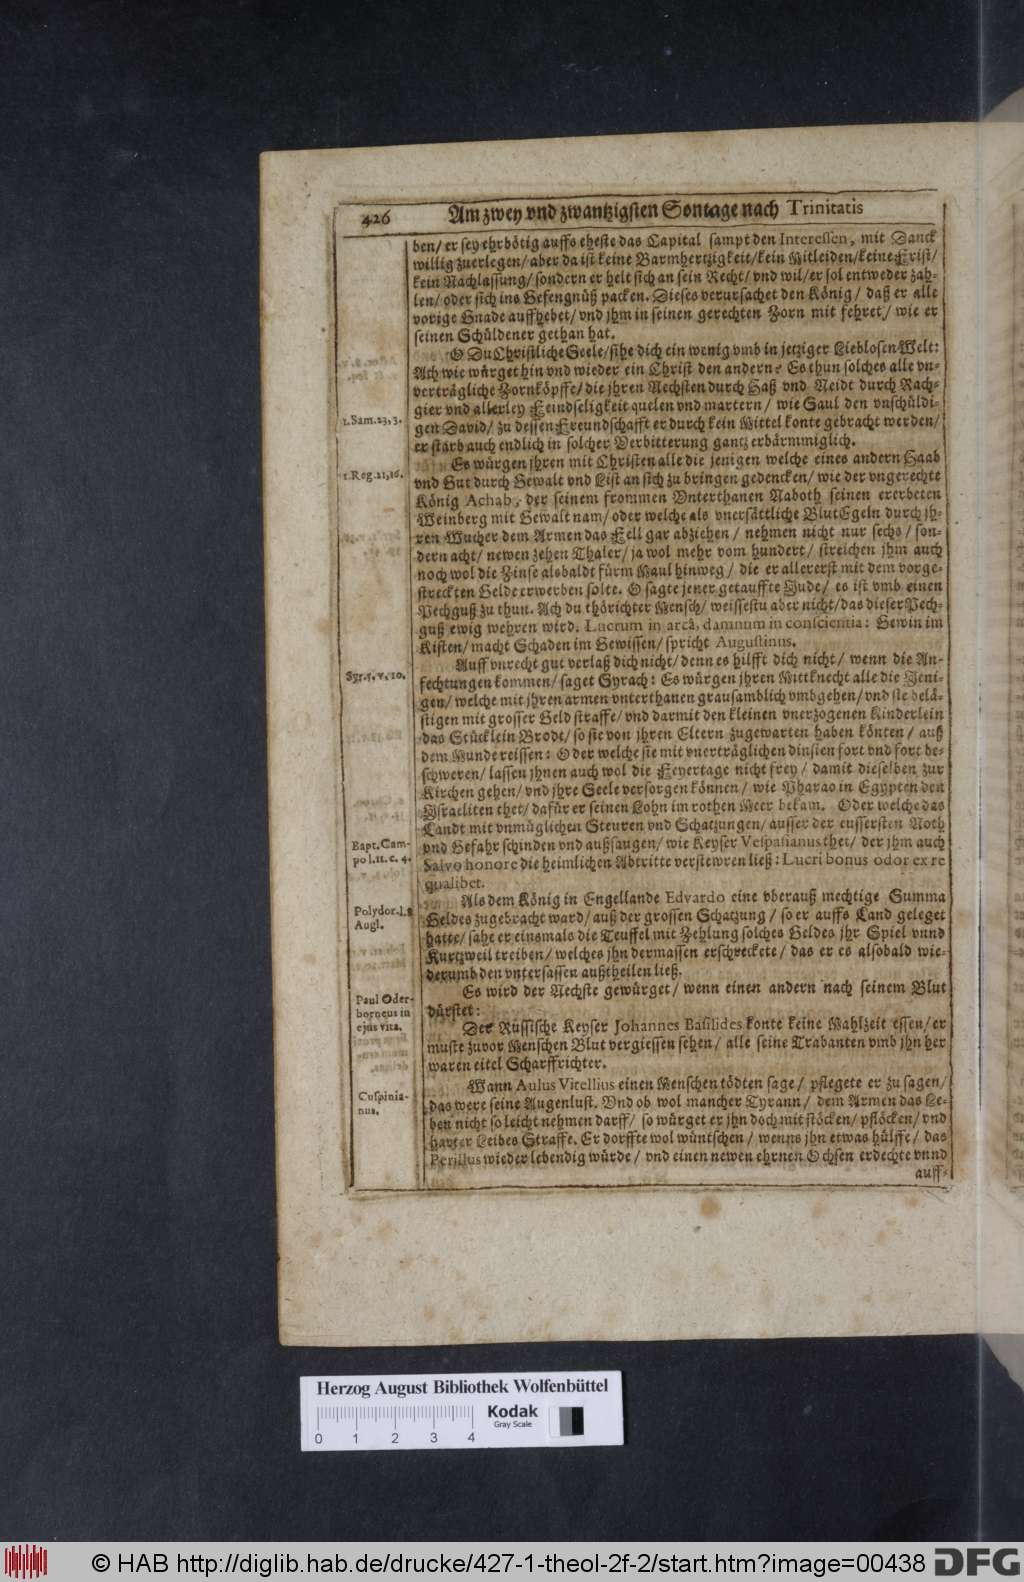 426 Am zwey vnd zwantzigsten Sontage nach Trinitatis
ben/ er sey ehrbötig auffs eheste das Capital sampt den Interessen, mit Danck
willig zuerlegen/ aber da ist keine Barmhertzigkeit/ kein Mitleiden/ keine Frist/
kein Nachlassung/ sondern er helt sich an sein Recht/ vnd wil/ er sol entweder zah-
len/ oder sich ins Gefengnüß packen. Dieses verursachet den König/ daß er alle
vorige Gnade auffhebet/ vnd jhm in seinen gerechten Zorn mit fehret/ wie er
seinen Schüldener gethan hat.
O Du Christliche Seele/ sihe dich ein wenig vmb in jetziger Lieblosen Welt:
Ach wie würget hin vnd wieder ein Christ den andern? Es thun solches alle vn-
verträgliche Zornköpffe/ die jhren Nechsten durch Haß vnd Neidt durch Rach-
gier vnd allerley Feindseligkeit quelen vnd martern/ wie Saul den vnschüldi-
1. Sam. 23, 3.
gen David/ zu dessen Freundschafft er durch kein Mittel konte gebracht werden/
er starb auch endlich in solcher Verbitterung gantz erbärmmiglich.
Es würgen jhren mit Christen alle die jenigen welche eines andern Haab
1. Reg. 21, 16.
vnd Gut durch Gewalt vnd List an sich zu bringen gedencken/ wie der vngerechte
König Achab, der seinem frommen Vnterthanen Naboth seinen ererbeten
Weinberg mit Gewalt nam/ oder welche als vnersättliche BlutEgeln durch jh-
ren Wucher dem Armen das Fell gar abziehen/ nehmen nicht nur sechs/ son-
dern acht/ newen zehen Thaler/ ja wol mehr vom hundert/ streichen jhm auch
noch wol die Zinse alsbaldt fürm Maul hinweg/ die er allererst mit dem vorge-
streckten Gelde erwerben solte. O sagte jener getauffte Jude/ es ist vmb einen
Pechguß zu thun. Ach du thörichter Mensch/ weissestu aber nicht/ das dieser Pech-
guß ewig wehren wird. Lucrum in arcâ, damnum in conscientia: Gewin im
Kisten/ macht Schaden im Gewissen/ spricht Augustinus.
Auff vnrecht gut verlaß dich nicht/ denn es hilfft dich nicht/ wenn die An-
Syr. 5. v. 10.
fechtungen kommen/ saget Syrach: Es würgen jhren Mittknecht alle die Jeni-
gen/ welche mit jhren armen vnterthanen grausamblich vmbgehen/ vnd sie belä-
stigen mit grosser Geld straffe/ vnd darmit den kleinen vnerzogenen Kinderlein
das Stücklein Brodt/ so sie von jhren Eltern zugewarten haben könten/ auß
dem Munde reissen: Oder welche sie mit vnerträglichen dinsten fort vnd fort be-
schweren/ lassen jhnen auch wol die Feyertage nicht frey/ damit dieselben zur
Kirchen gehen/ vnd jhre Seele versorgen können/ wie Pharao in Egypten den
Israeliten thet/ dafür er seinen Lohn im rothen Meer bekam. Oder welche das
Landt mit vnmüglichen Steuren vnd Schatzungen/ ausser der eussersten Noth
Bapt. Cam-
vnd Gefahr schinden vnd außsaugen/ wie Keyser Vespasianus thet/ der jhm auch
po l. 11. c. 4.
Salvo honore die heimlichen Abtritte verstewren ließ: Lucri bonus odor ex re
qualibet.
Als dem König in Engellande Edvardo eine vberauß mechtige Summa
Polydor. l. 8
Geldes zugebracht ward/ auß der grossen Schatzung/ so er auffs Land geleget
Augl.
hatte/ sahe er einsmals die Teuffel mit Zehlung solches Geldes jhr Spiel vnnd
Kurtzweil treiben/ welches jhn dermassen erschreckete/ das er es alsobald wie-
derumb den vntersassen außtheilen ließ.
Es wird der Nechste gewürget/ wenn einen andern nach seinem Blut
Paul Oder-
dürstet:
borneus in
Der Russische Keyser Johannes Basilides konte keine Mahlzeit essen/ er
ejus vita.
muste zuvor Menschen Blut vergiessen sehen/ alle seine Trabanten vmb jhn her
waren eitel Scharffrichter.
Wann Aulus Vitellius einen Menschen tödten sage/ pflegete er zu sagen/
Cuspinia-
das were seine Augenlust. Vnd ob wol mancher Tyrann/ dem Armen das Le-
nus.
ben nicht so leicht nehmen darff/ so würget er jhn doch mit stöcken/ pflöcken/ vnd
harter Leibes Straffe. Er dorffte wol wüntschen/ wenns jhn etwas hülffe/ das
Perillus wieder lebendig würde/ vnd einen newen ehrnen Ochsen erdechte vnnd
auff-
Herzog August Bibliothek Wolfenbüttel
Kodak
Gray Scale
0 1 2 3 4
© HAB http://diglib.hab.de/drucke/427-1-theol-2f-2/start.htm?image=00438 DFG